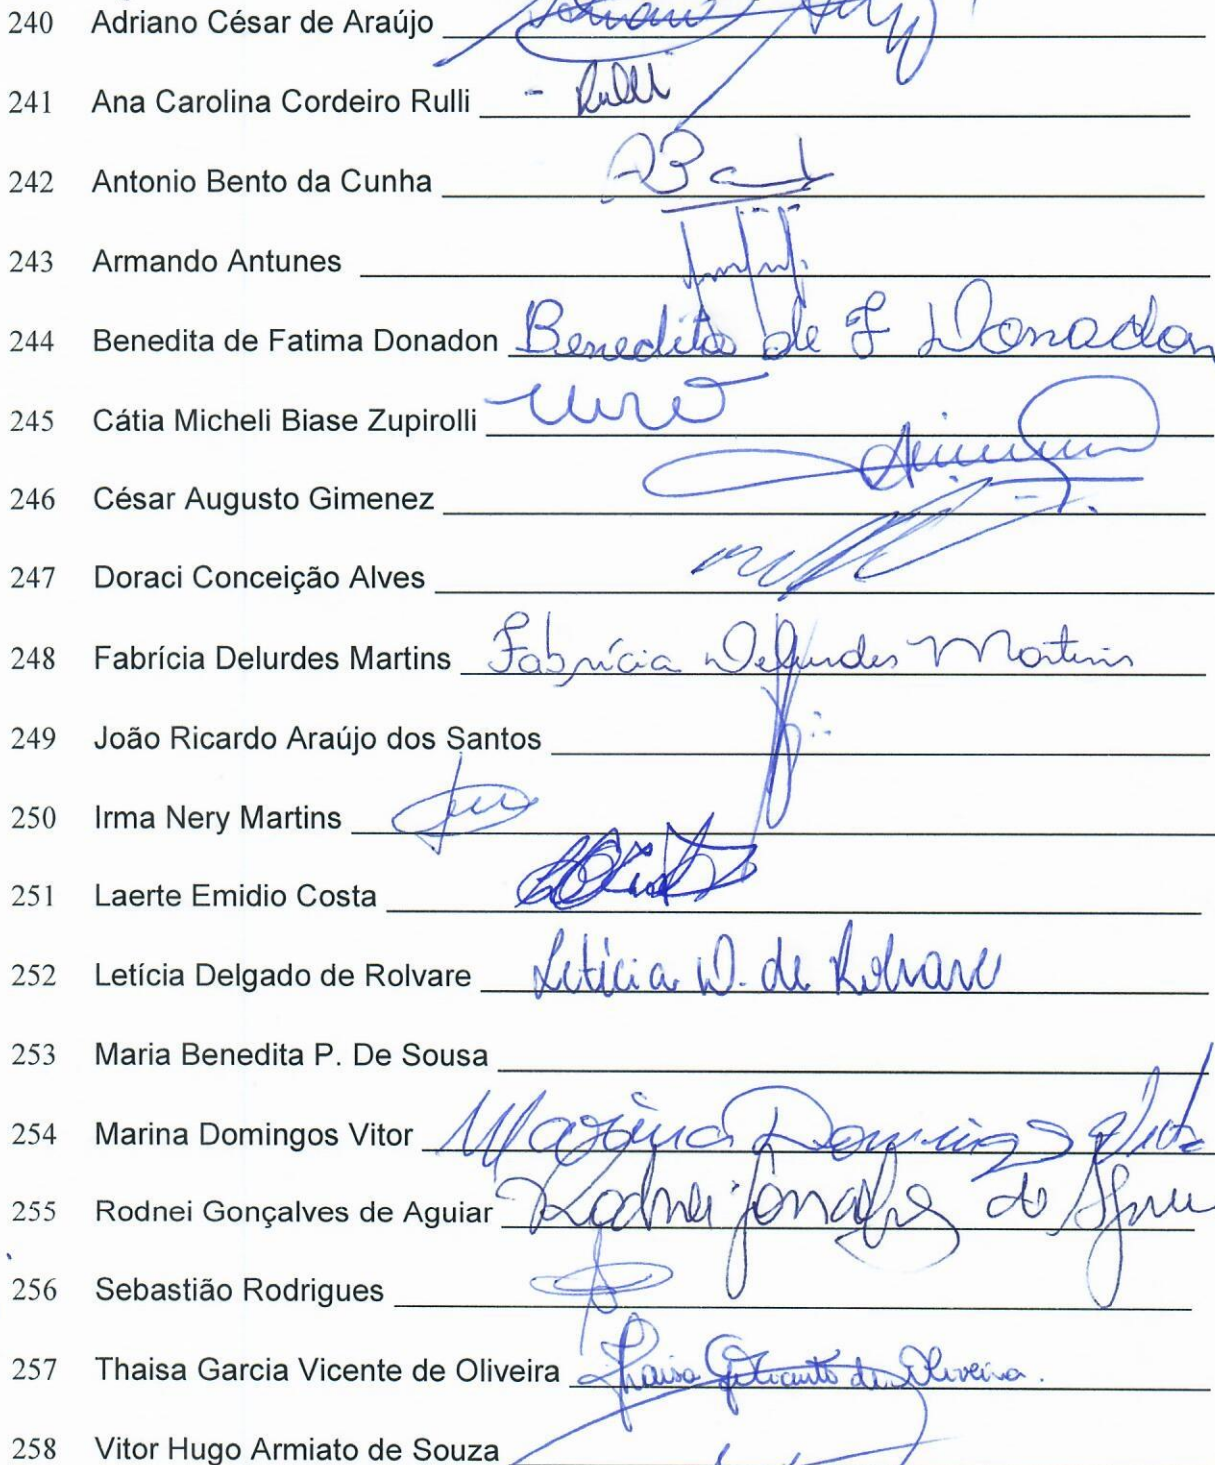 240 Adriano César de Araújo
241 Ana Carolina Cordeiro Rulli - Rulli
242 Antonio Bento da Cunha
243 Armando Antunes
244 Benedita de Fatima Donadon Benedita de F Donadon
245 Cátia Micheli Biase Zupirolli
246 César Augusto Gimenez
247 Doraci Conceição Alves
248 Fabrícia Delurdes Martins Fabrícia Delurdes Martins
249 João Ricardo Araújo dos Santos
250 Irma Nery Martins
251 Laerte Emidio Costa
252 Letícia Delgado de Rolvare Letícia D. de Rolvare
253 Maria Benedita P. De Sousa
254 Marina Domingos Vitor Marina Domingos Vitor
255 Rodnei Gonçalves de Aguiar Rodnei Gonçalves de
256 Sebastião Rodrigues
257 Thaisa Garcia Vicente de Oliveira Thaisa de Oliveira.
258 Vitor Hugo Armiato de Souza